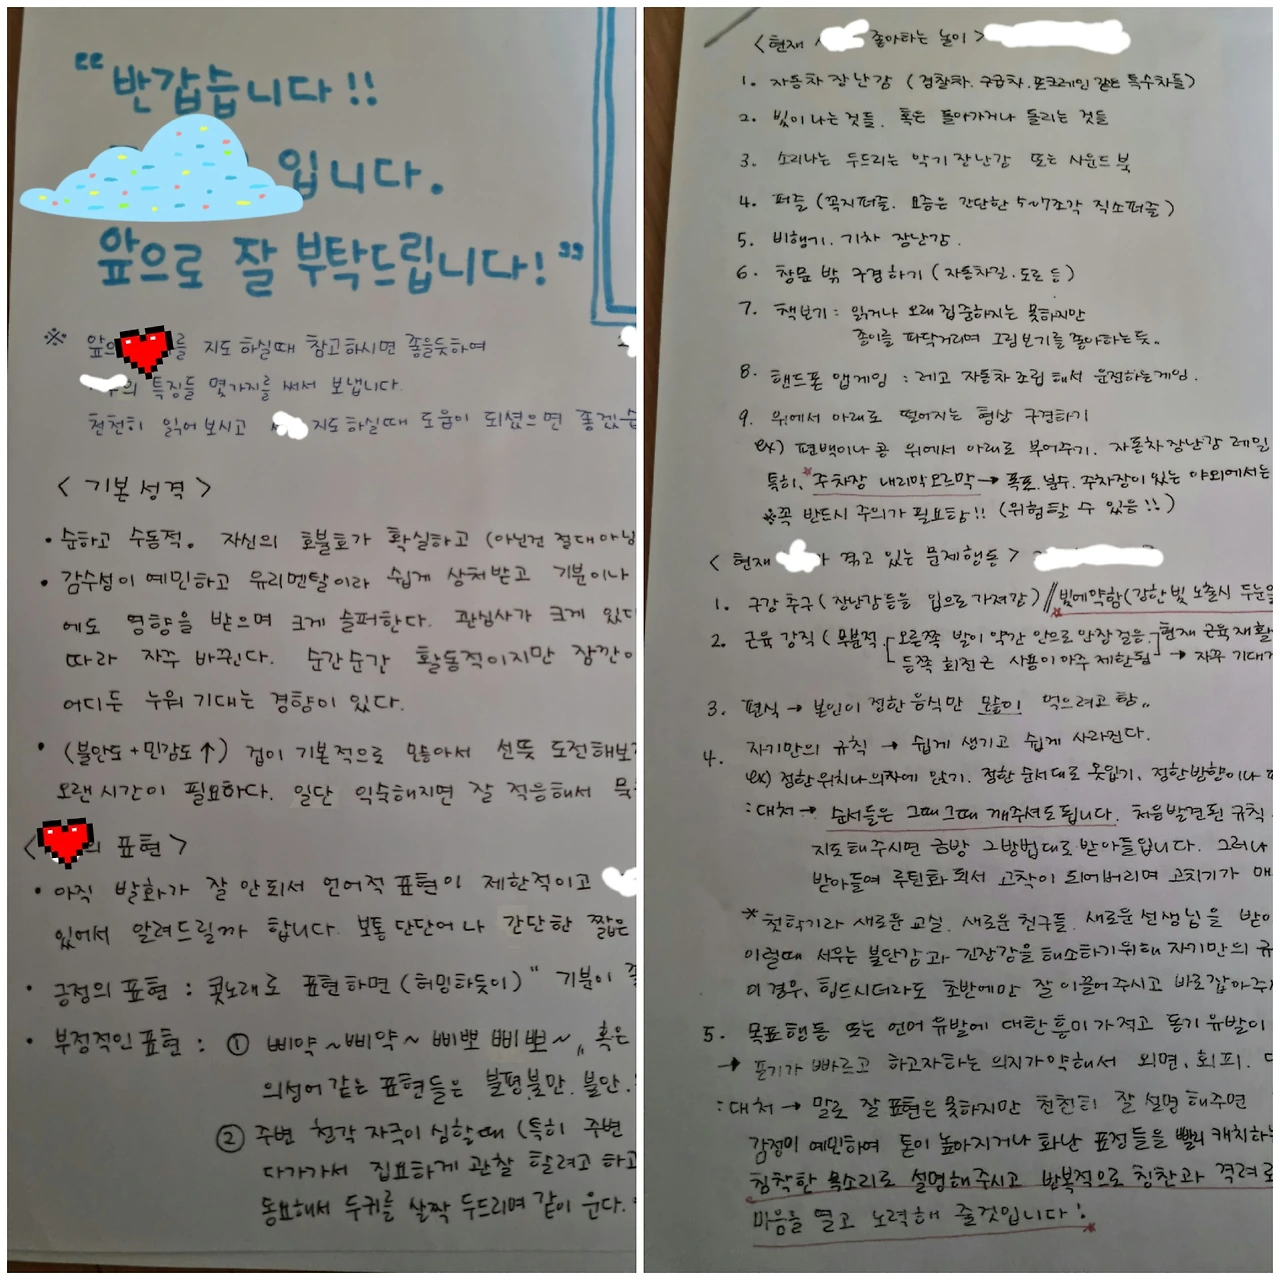 "반갑습니다!!
입니다.
앞으로 잘 부탁드립니다!"
※ 앞으 를 지도 하실때 참고하시면 좋을듯하여
의 특징들 몇가지를 써서 보냅니다.
천천히 읽어 보시고 지도하실때 도움이 되셨으면 좋겠습
< 기본 성격 >
• 순하고 수동적. 자신의 호불호가 확실하고 (아닌건 절대아님
• 감수성이 예민하고 유리멘탈이라 쉽게 상처받고 기분이나
에도 영향을 받으며 크게 슬퍼한다. 관심사가 크게 있다
따라 자주 바뀐다. 순간순간 활동적이지만 잠깐이
어디든 누워 기대는 경향이 있다.
• (불안도+민감도↑) 겁이 기본적으로 많아서 선뜻 도전해보
오랜시간이 필요하다. 일단 익숙해지면 잘 적응해서
< 의 표현 >
• 아직 발화가 잘 안되서 언어적 표현이 제한적이고
있어서 알려드릴까 합니다. 보통 단단어나 간단한 짧은
• 긍정의 표현 : 콧노래로 표현하면 (허밍하듯이) " 기분이 좋
• 부정적인 표현 : ① 삐약~삐약~ 삐뽀 삐뽀~,, 혹은
의성어 같은 표현들은 불평불만. 불안.
② 주변 청각 자극이 심할때 (특히 주변
다가가서 집요하게 관찰 할려고 하고
동요해서 두귀를 살짝 두드리며 같이 운다.
<현재 좋아하는 놀이>
1. 자동차 장난감 (경찰차. 구급차. 포크레인 같은 특수차들)
2. 빛이 나는 것들. 혹은 돌아가거나 돌리는 것들
3. 소리나는 두드리는 악기 장난감 또는 사운드 북
4. 퍼즐 (꼭지퍼즐. 요즘은 간단한 5~7조각 직소퍼즐)
5. 비행기. 기차 장난감.
6. 창문 밖 구경하기 (자동차길. 도로 등)
7. 책보기 : 읽거나 오래 집중하지는 못하지만
종이를 파닥거리며 그림보기를 좋아하는듯..
8. 핸드폰 앱게임 : 레고 자동차 조립 해서 운전하는게임.
9. 위에서 아래로 떨어지는 형상 구경하기
ex) 편백이나 콩 위에서 아래로 부어주기. 자동차 장난감 레일
특히, *주차장 내리막오르막 → 폭포. 분수. 주차장이 있는 야외에서는
※꼭 반드시 주의가 필요함!! (위험할 수 있음!!)
<현재 가 겪고 있는 문제행동>
1. 구강 추구 (장난감등을 입으로 가져감) // 빛에약함(강한 빛 노출시 두눈을
2. 근육 강직 (부분적 오른쪽 발이 약간 안으로 안장 걸음. 현재 근육 재활
등쪽 회전근 사용이 아주 제한됨 → 자꾸 기대거
3. 편식 → 본인이 정한 음식만 많이 먹으려고 함..
4. 자기만의 규칙 → 쉽게 생기고 쉽게 사라진다.
ex) 정한 위치나 의자에 앉기. 정한 순서대로 옷입기. 정한방향이나
: 대처 → 순서들은 그때그때 깨주셔도됩니다. 처음발견된 규칙
지도해주시면 금방 그방법대로 받아들입니다. 그러나
받아들여 루틴화 되서 고착이 되어버리며 고치기가 매
* 첫학기라 새로운 교실. 새로운 친구들. 새로운 선생님을 받아
이럴때 서우는 불안감과 긴장감을 해소하기위해 자기만의 규
이 경우, 힘드시더라도 초반에만 잘 이끌어주시고 바로잡아주시
5. 목표행동 또는 언어 유발에 대한 흥미가 적고 동기 유발이
→ 포기가 빠르고 하고자하는 의지가약해서 외면, 회피.
: 대처 → 말로 잘 표현은 못하지만 천천히 잘 설명 해주면
감정이 예민하여 톤이 높아지거나 화난 표정들을 빨리 캐치하는
침착한 목소리로 설명해주시고 반복적으로 칭찬과 격려로
마음을 열고 노력해 줄것입니다!